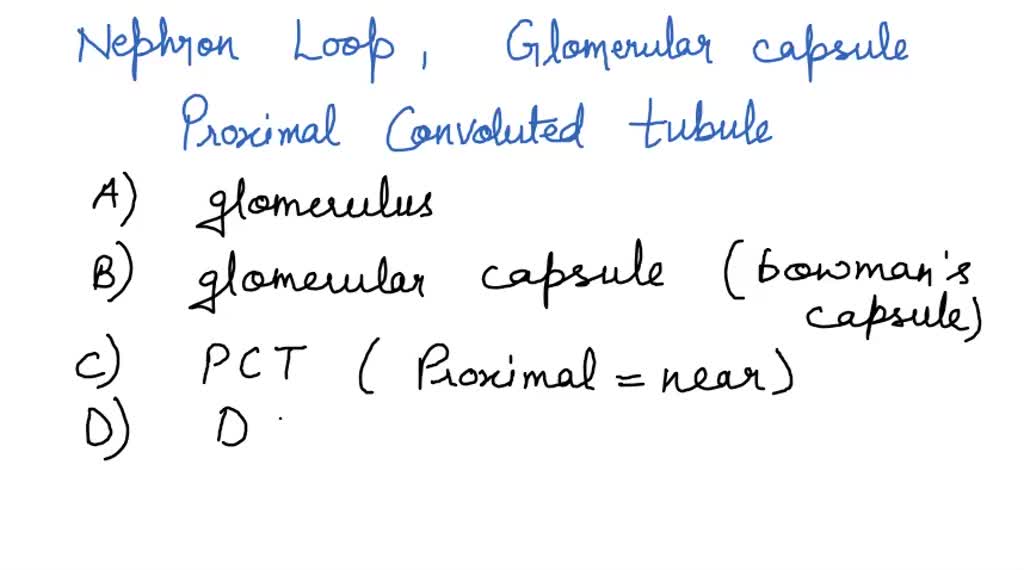 Nephron Loop, Glomerular capsule
Proximal Convoluted tubule
A) glomerulus
B) glomerular capsule (bowman's
capsule)
C) PCT (Proximal = near)
D) D